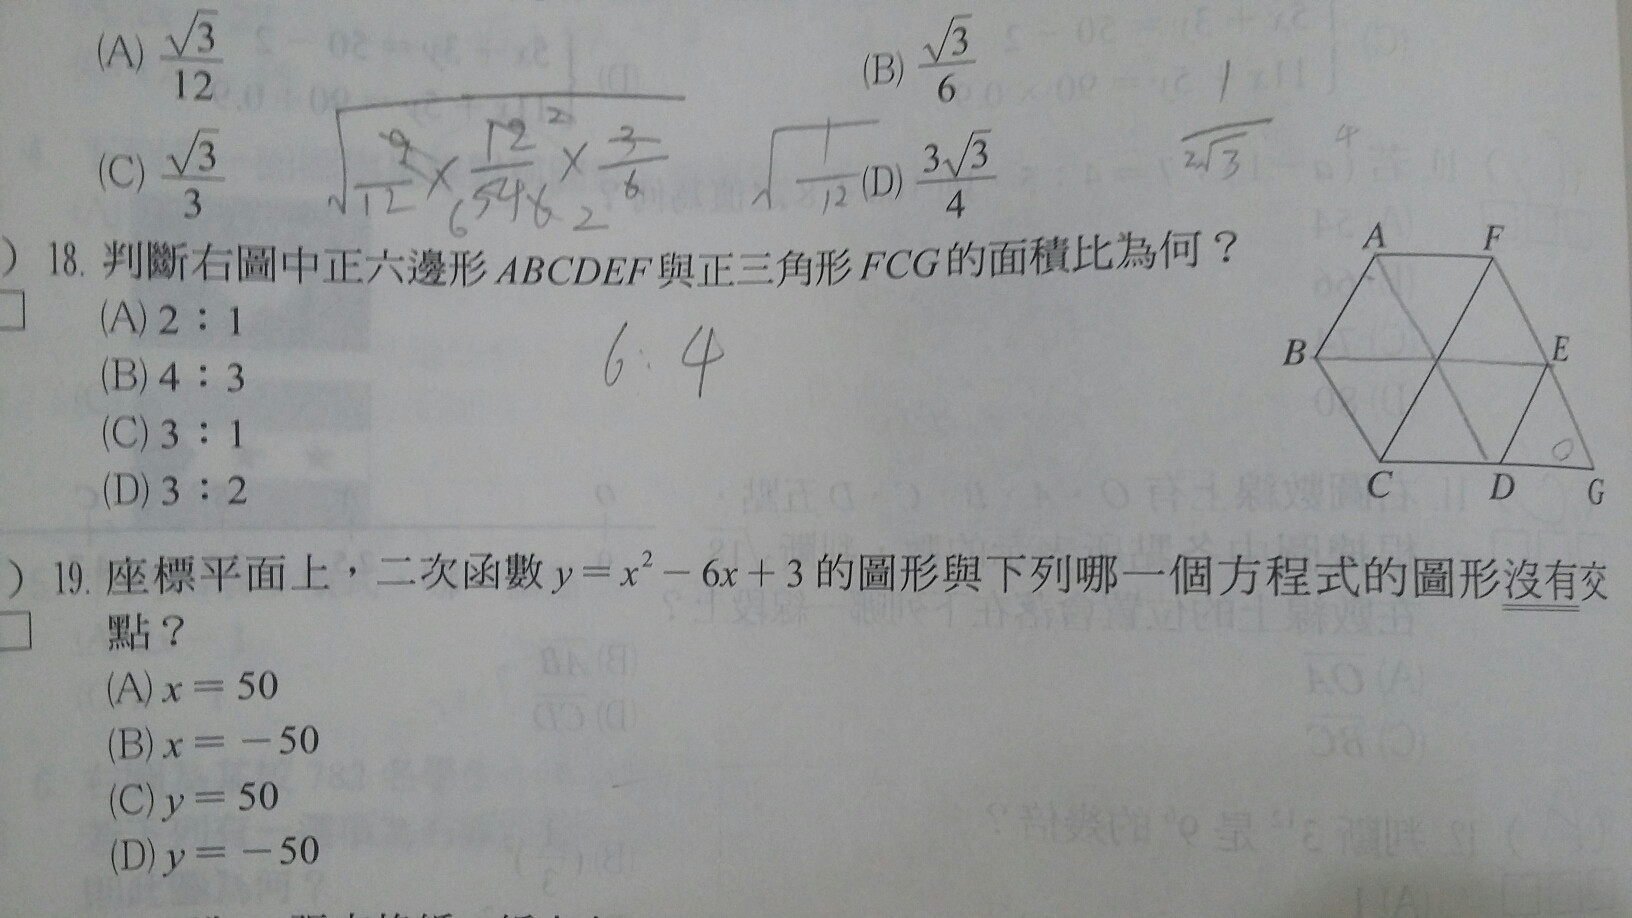 (A) √3/12
(B) √3/6
(C) √3/3
(D) 3√3/4
1
2√3
4
) 18. 判斷右圖中正六邊形 ABCDEF 與正三角形 FCG 的面積比為何？
(A) 2：1
(B) 4：3
(C) 3：1
(D) 3：2
6:4
A F
B E
C D G
) 19. 座標平面上，二次函數 y = x² − 6x + 3 的圖形與下列哪一個方程式的圖形沒有交
點？
(A) x = 50
(B) x = −50
(C) y = 50
(D) y = −50